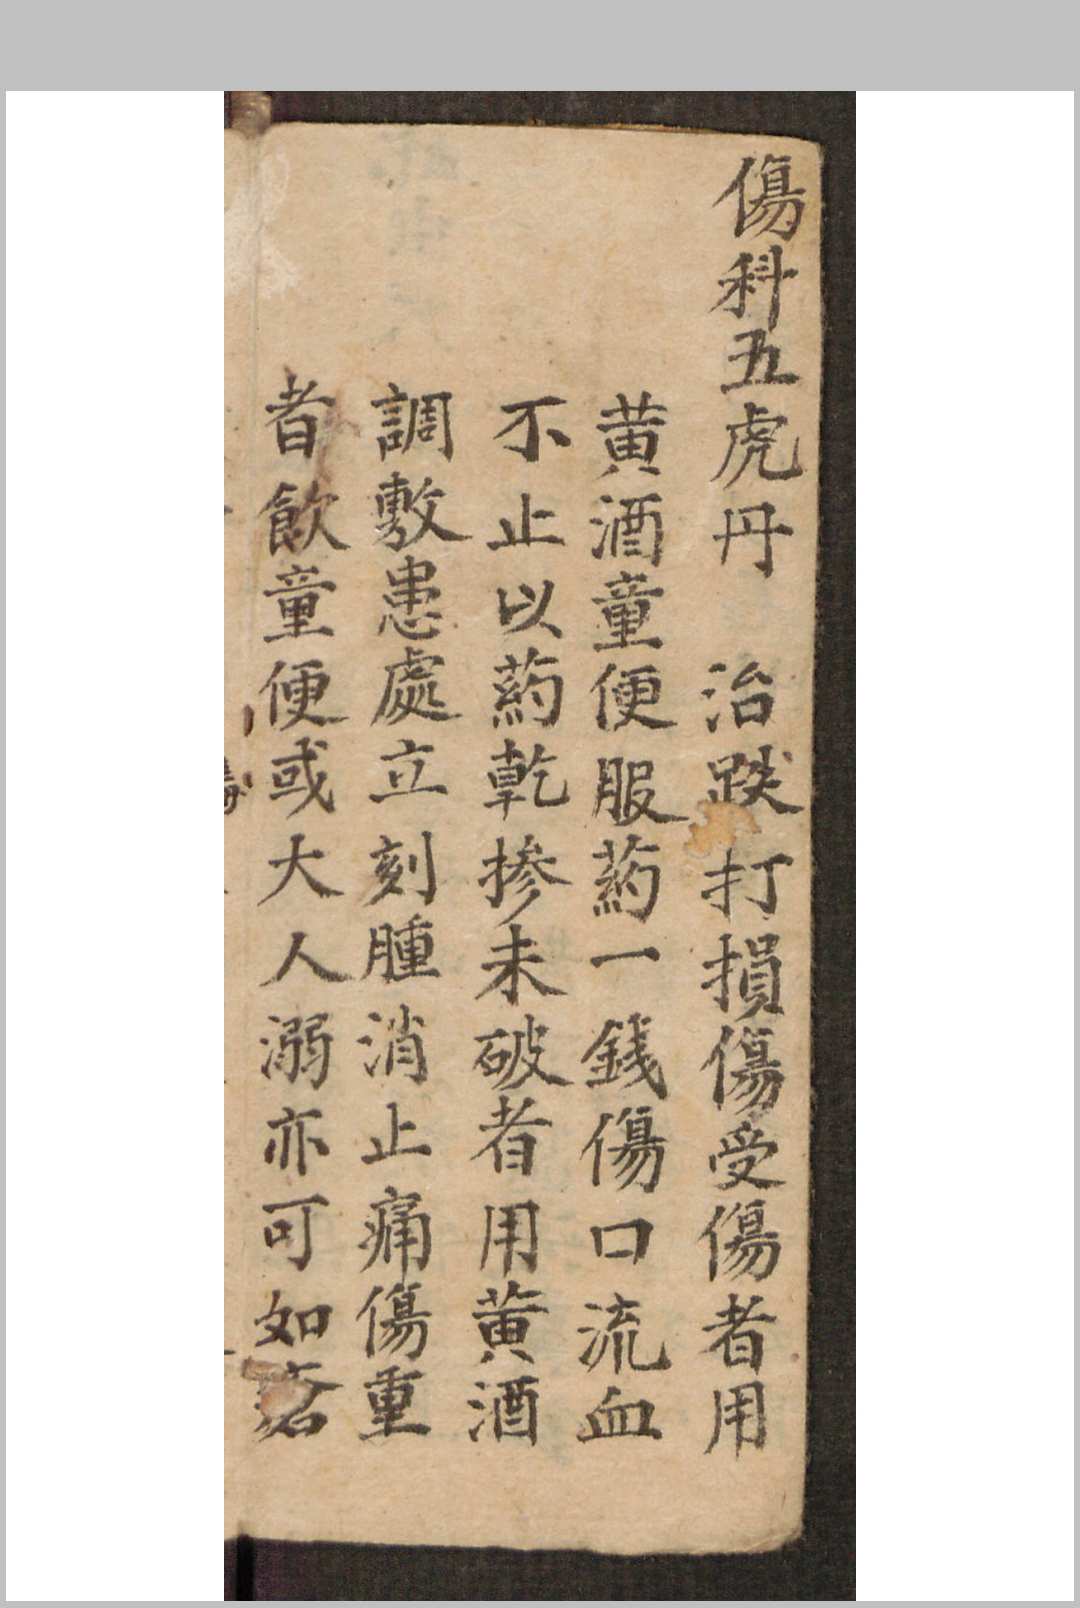 傷科五虎丹　治跌打損傷受傷者用
黄酒童便服葯一錢傷口流血
不止以葯乾摻未破者用黄酒
調敷患處立刻腫消止痛傷重
者飲童便或大人溺亦可如